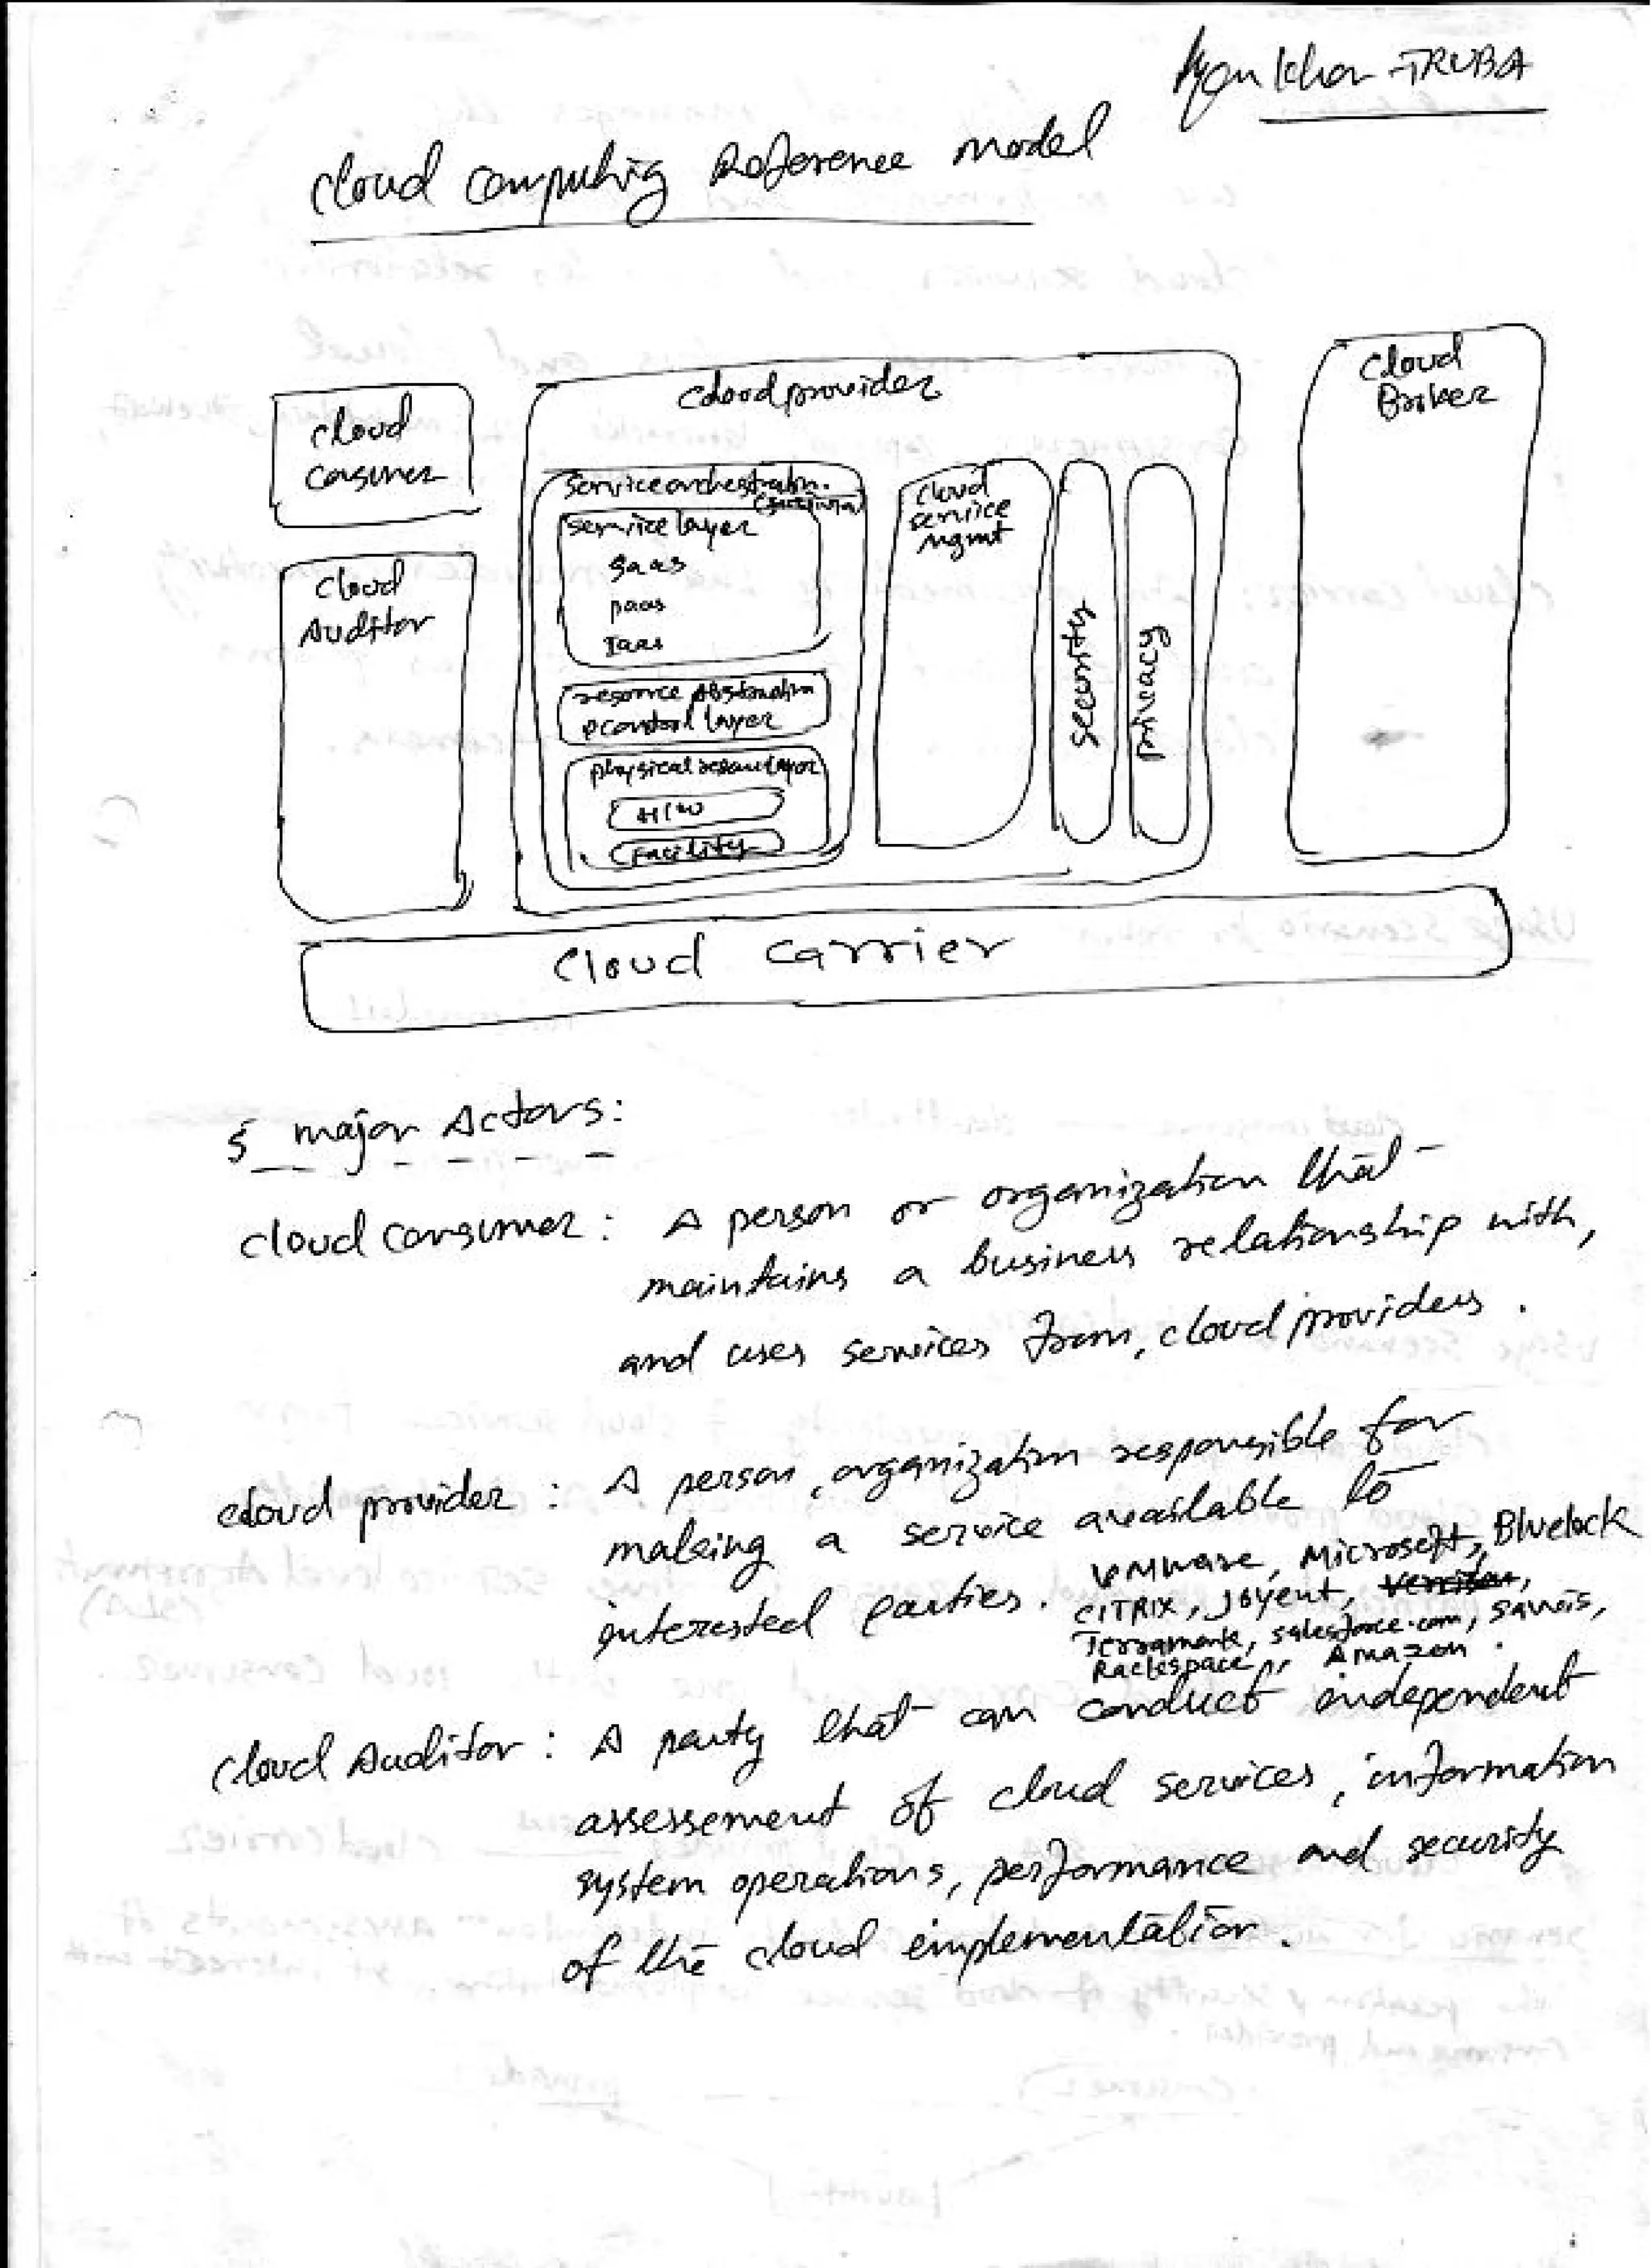 Khan TRUBA
Cloud Computing Reference Model
Cloud
Consumer
Cloud
Auditor
Cloud provider
Service orchestration.
Service layer
SaaS
PaaS
IaaS
resource Abstraction
& control layer
physical resource layer
H/W
Facility
Cloud
service
Mgmt
security
privacy
Cloud
Broker
Cloud Carrier
5 major Actors:
Cloud Consumer : A person or organization that
maintains a business relationship with,
and uses services from, cloud providers.
Cloud provider : A person, organization responsible for
making a service available to
interested parties.
VMware, Microsoft, Bluelock
CITRIX, Joyent,
Terramark, salesforce.com, savvis,
Rackspace, Amazon.
Cloud Auditor : A party that can conduct independent
assessement of cloud services, information
system operations, performance and security
of the cloud implementation.